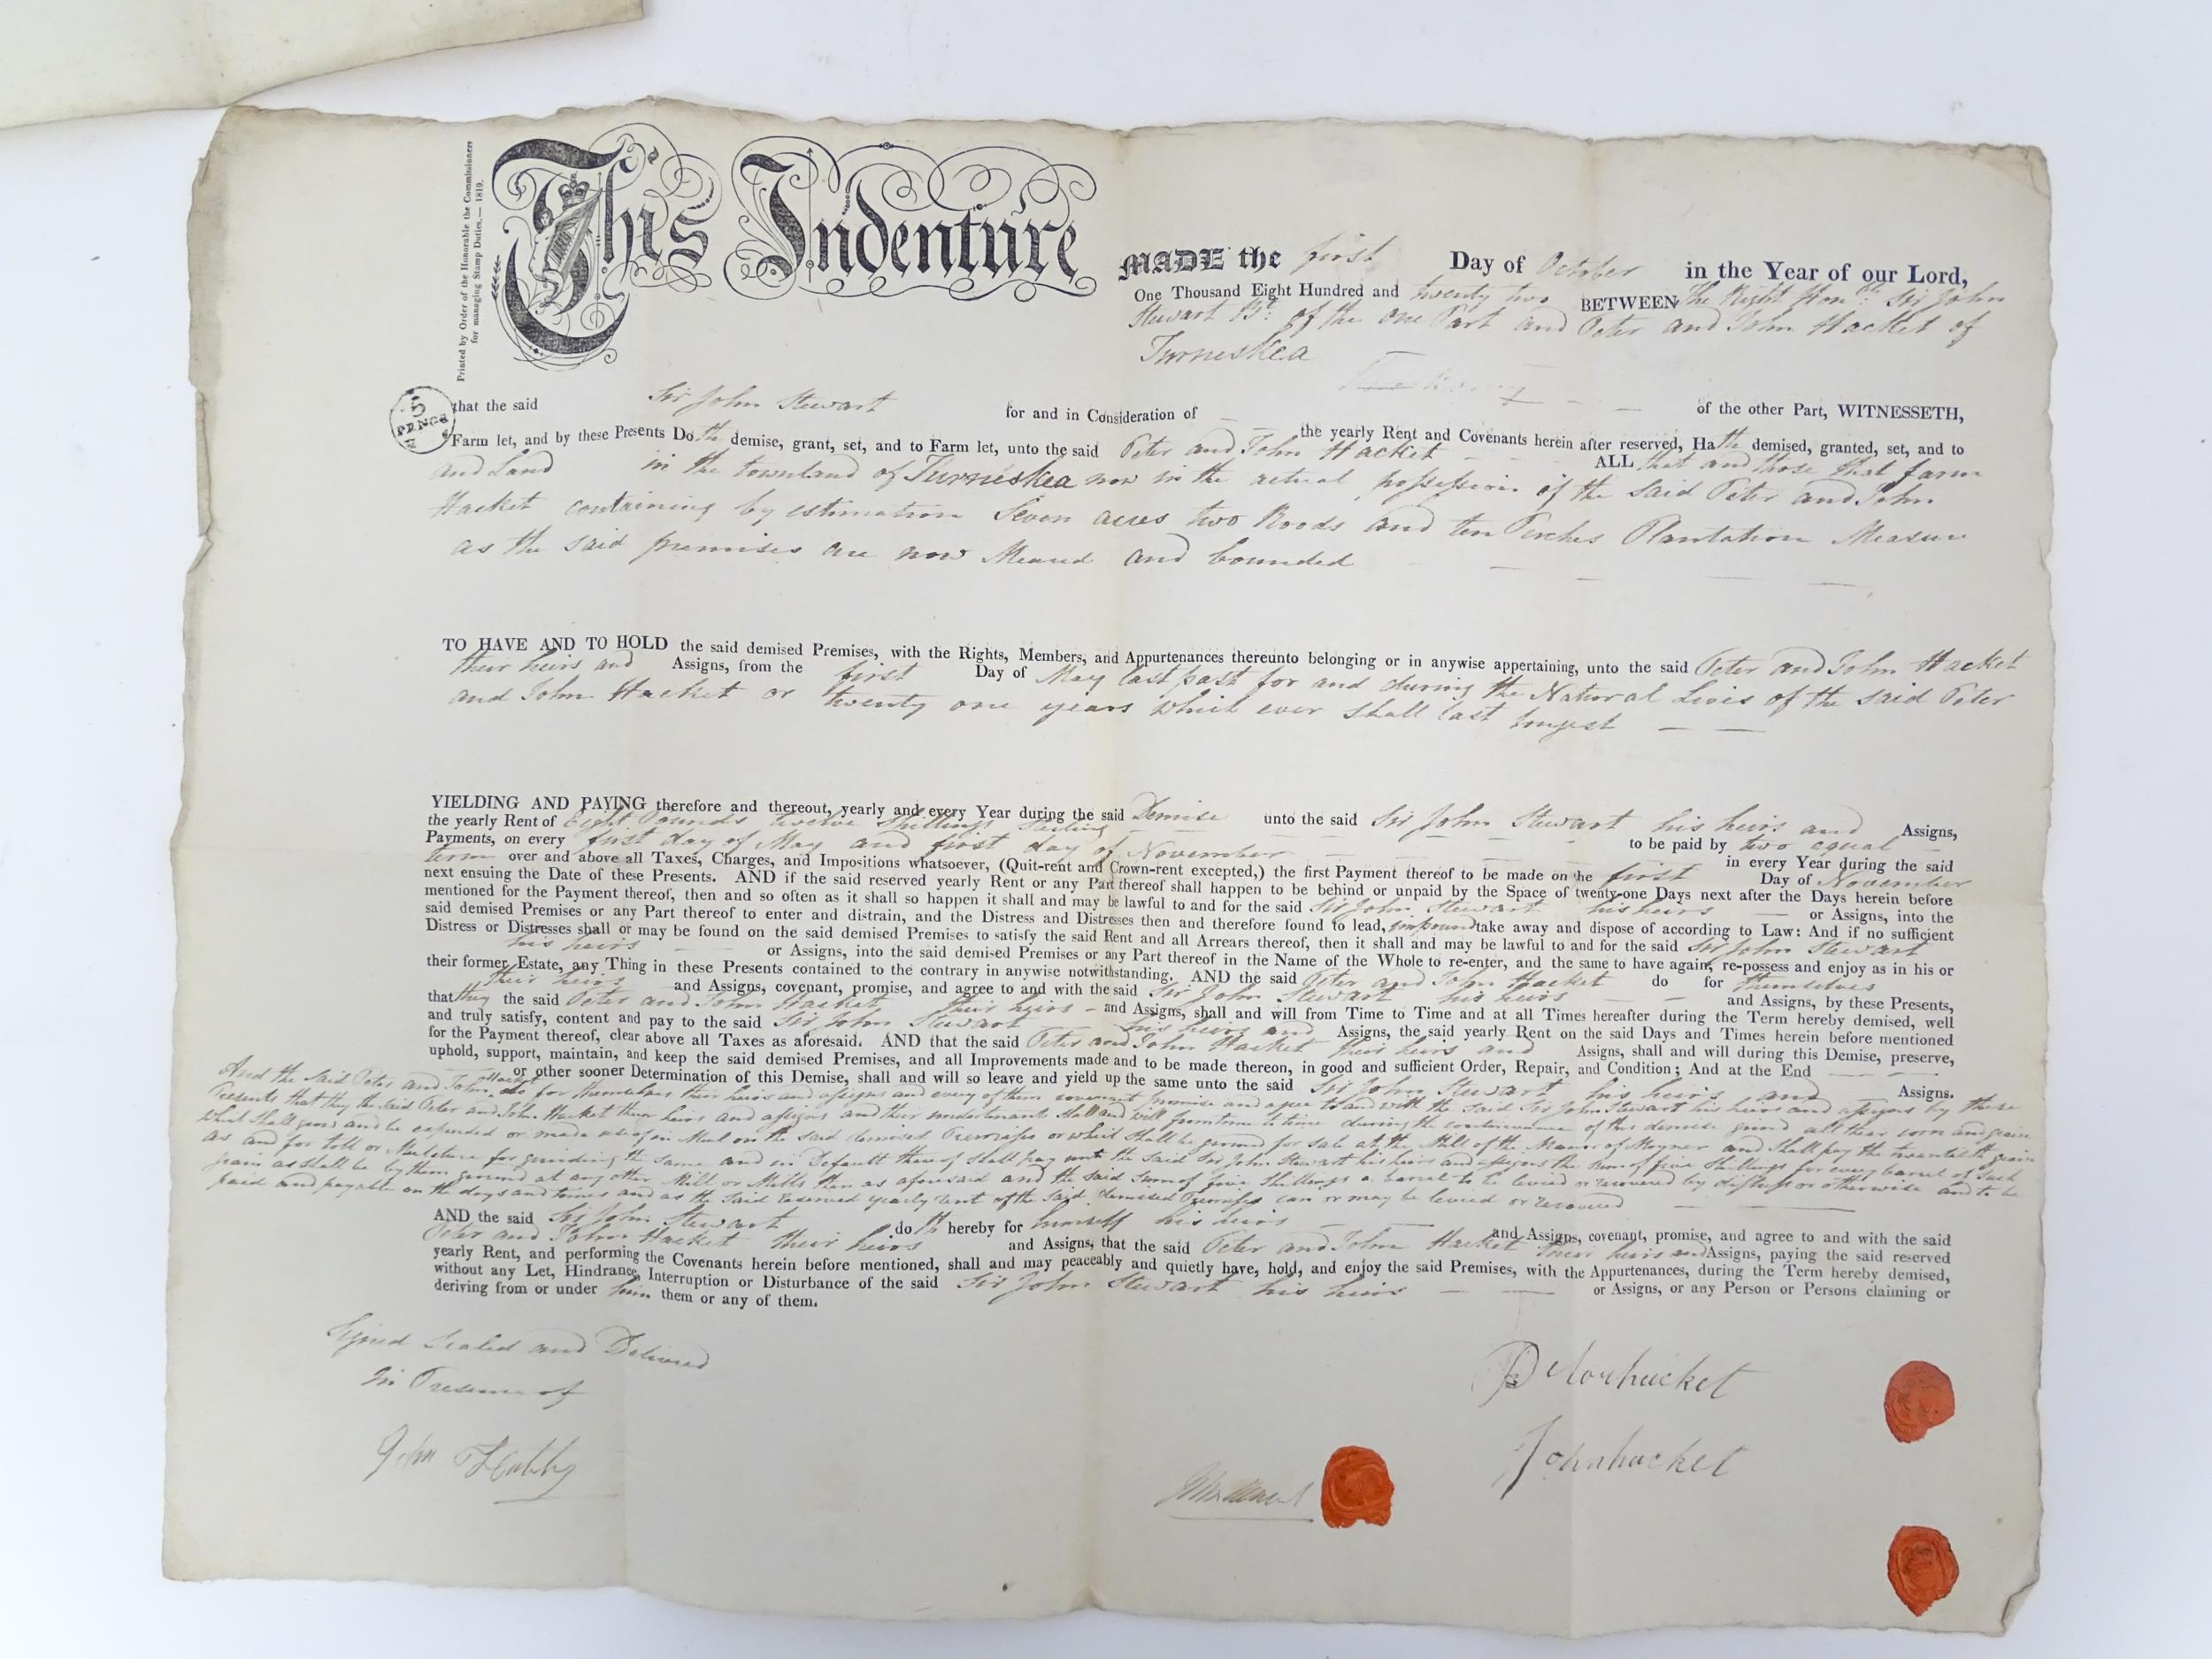 Printed by Order of the Honorable the Commissioners
for managing Stamp Duties,— 1819.
This Indenture
MADE the first Day of October in the Year of our Lord,
One Thousand Eight Hundred and twenty two BETWEEN The Right Honble Sir John
Stewart Bt of the one Part and Peter and John Hacket of
Turneskea
of the other Part, WITNESSETH,
5 PENCE
that the said Sir John Stewart for and in Consideration of the yearly Rent and Covenants herein after reserved, Hath demised, granted, set, and to
Farm let, and by these Presents Doth demise, grant, set, and to Farm let, unto the said Peter and John Hacket ALL that and those that farm
and Land in the townland of Turneskea now in the actual possession of the said Peter and John
Hacket containing by estimation Seven acres two Roods and ten Perches Plantation Measure
as the said premises are now Meared and bounded
TO HAVE AND TO HOLD the said demised Premises, with the Rights, Members, and Appurtenances thereunto belonging or in anywise appertaining, unto the said Peter and John Hacket
their heirs and Assigns, from the first Day of May last past for and during the Natural Lives of the said Peter
and John Hacket or twenty one years which ever shall last longest
YIELDING AND PAYING therefore and thereout, yearly and every Year during the said Demise unto the said Sir John Stewart his heirs and Assigns,
the yearly Rent of Eight Pounds twelve Shillings Sterling to be paid by two equal
Payments, on every first day of May and first day of November in every Year during the said
term over and above all Taxes, Charges, and Impositions whatsoever, (Quit-rent and Crown-rent excepted,) the first Payment thereof to be made on the first Day of November
next ensuing the Date of these Presents. AND if the said reserved yearly Rent or any Part thereof shall happen to be behind or unpaid by the Space of twenty-one Days next after the Days herein before
mentioned for the Payment thereof, then and so often as it shall so happen it shall and may be lawful to and for the said Sir John Stewart his heirs or Assigns, into the
said demised Premises or any Part thereof to enter and distrain, and the Distress and Distresses then and therefore found to lead, impound take away and dispose of according to Law: And if no sufficient
Distress or Distresses shall or may be found on the said demised Premises to satisfy the said Rent and all Arrears thereof, then it shall and may be lawful to and for the said Sir John Stewart
his heirs or Assigns, into the said demised Premises or any Part thereof in the Name of the Whole to re-enter, and the same to have again, re-possess and enjoy as in his or
their former Estate, any Thing in these Presents contained to the contrary in anywise notwithstanding. AND the said Peter and John Hacket do for themselves
their heirs and Assigns, covenant, promise, and agree to and with the said Sir John Stewart his heirs and Assigns, by these Presents,
that they the said Peter and John Hacket their heirs and Assigns, shall and will from Time to Time and at all Times hereafter during the Term hereby demised, well
and truly satisfy, content and pay to the said Sir John Stewart his heirs and Assigns, the said yearly Rent on the said Days and Times herein before mentioned
for the Payment thereof, clear above all Taxes as aforesaid. AND that the said Peter and John Hacket their heirs and Assigns, shall and will during this Demise, preserve,
uphold, support, maintain, and keep the said demised Premises, and all Improvements made and to be made thereon, in good and sufficient Order, Repair, and Condition; And at the End
or other sooner Determination of this Demise, shall and will so leave and yield up the same unto the said Sir John Stewart his heirs and Assigns.
And the said Peter and John Hacket do for themselves their heirs and assigns and every of them covenant promise and agree to and with the said Sir John Stewart his heirs and assigns by these
Presents that they the said Peter and John Hacket their heirs and assigns and their undertenants shall and will from time to time during the continuance of this demise grind all their corn and grain
which shall grow and be expended or made use of in Meal on the said demised Premises or which shall be ground for sale at the Mill of the Manor of and shall pay the grain
as and for toll or Mulcture for grinding the same and in Default thereof shall pay unto the said Sir John Stewart his heirs and assigns the sum of five Shillings for every barrel of such
grain as shall be by them ground at any other Mill or Mills than as aforesaid and the said Sum of five Shillings a barrel to be levied or recovered by distress or otherwise and to be
paid and payable on the days and times and as the said reserved yearly rent of the said demised Premises can or may be levied or recovered
AND the said Sir John Stewart doth hereby for himself his heirs and Assigns, covenant, promise, and agree to and with the said
Peter and John Hacket their heirs and Assigns, that the said Peter and John Hacket their heirs and Assigns, paying the said reserved
yearly Rent, and performing the Covenants herein before mentioned, shall and may peaceably and quietly have, hold, and enjoy the said Premises, with the Appurtenances, during the Term hereby demised,
without any Let, Hindrance, Interruption or Disturbance of the said Sir John Stewart his heirs or Assigns, or any Person or Persons claiming or
deriving from or under him them or any of them.
Signed Sealed and Delivered
In Presence of
John
John hacket